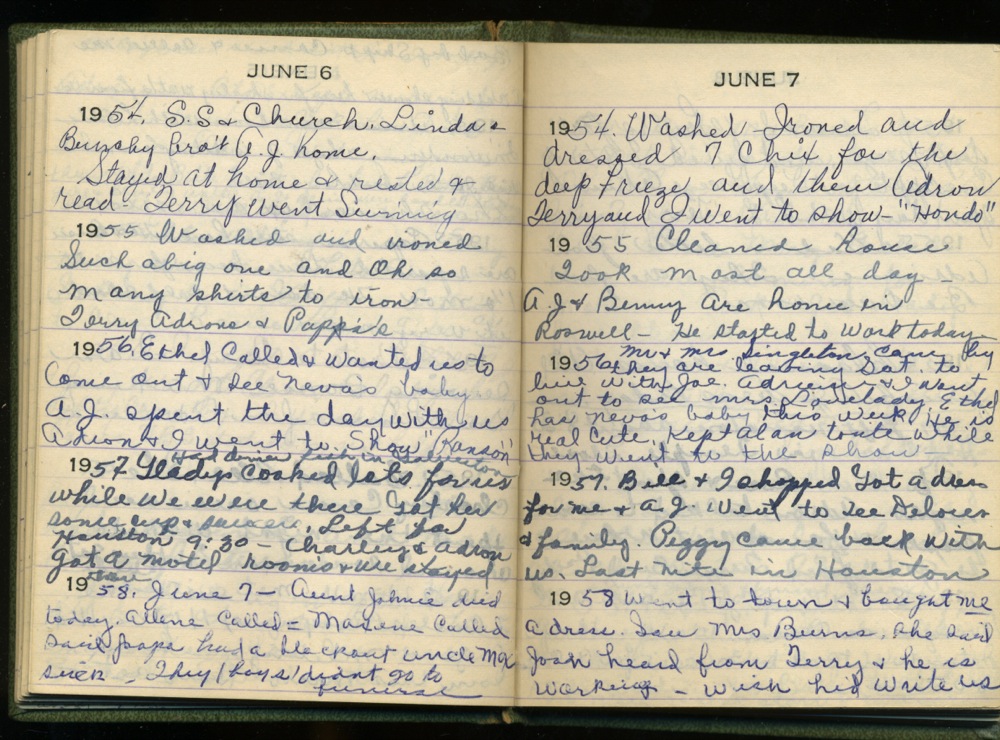 JUNE 6
1954. S.S & Church. Linda &
Bunshy bro't A.J. home.
Stayed at home & rested &
read Terry went Swimig
1955 Washed and ironed
Such a big one and Oh so
many shirts to iron -
Terry Adrone & Pappa's
1956. Ethel Called & wanted us to
Come out & see Neva's baby
A.J. spent the day with us
Adron & I went to Show "Ranson"
Had dinner in
1957 Gladys cooked lots for us
while we were there Got her
some cup & saucers. Left for
Houston 9:30 - Charley & Adron
got a motel rooms & we stayed
1958. June 7 - Aunt Johnie died
today. Allene Called = Maxene Called
said papa had a blackout uncle Mg
sick - They (boys) didnt go to
funeral
JUNE 7
1954. Washed Ironed and
dressed 7 Chix for the
deep Frieze and them Adron
Terry and I went to show - "Hondo"
1955 Cleaned house
Took most all day -
A.J & Benny Are home in
Roswell - He started to work today
Mr & Mrs Singleton Came by
1956 they are leaving Sat to
live with Joe. & I went
out to see Mrs Lovelady Ethel
has Neva's baby this week, He is
real cute. Kept Alan tonite while
They went to the show -
1957. Bill & I shopped Got a dress
for me & A.J. Went to see Delores
& family. Peggy came back with
us. Last nite in Houston
1958 Went to town & bought me
a dress. Saw Mrs Burns. she said
Josh heard from Terry & he is
working - wish he'd write us